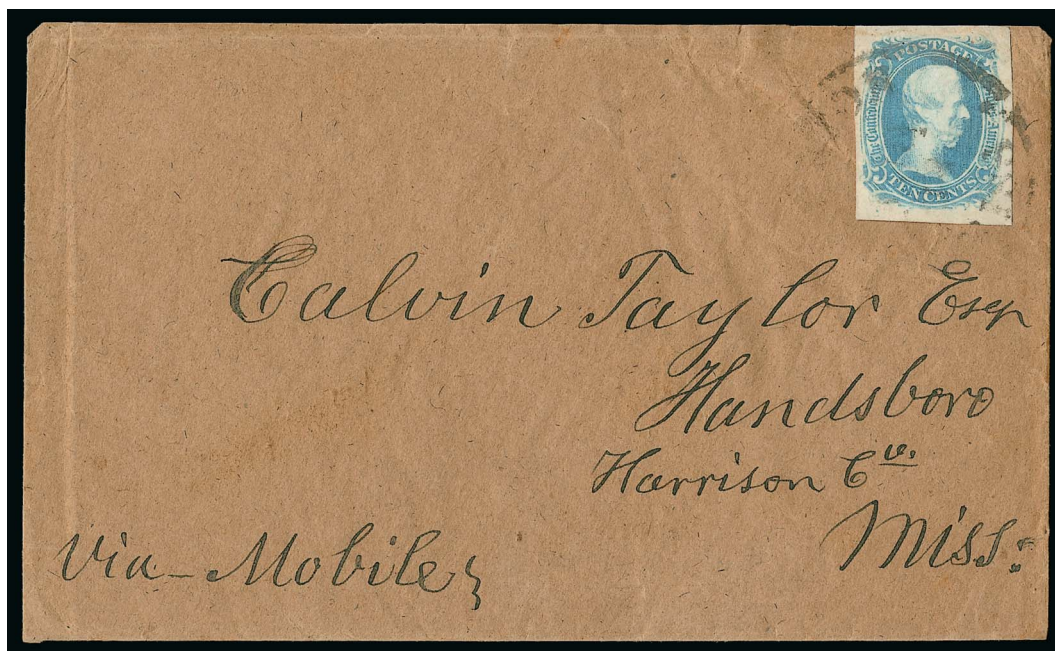 POSTAGE
The Confederate States of America
TEN CENTS
Calvin Taylor Esqr
Handsboro
Harrison Co.
Miss:
Via - Mobile